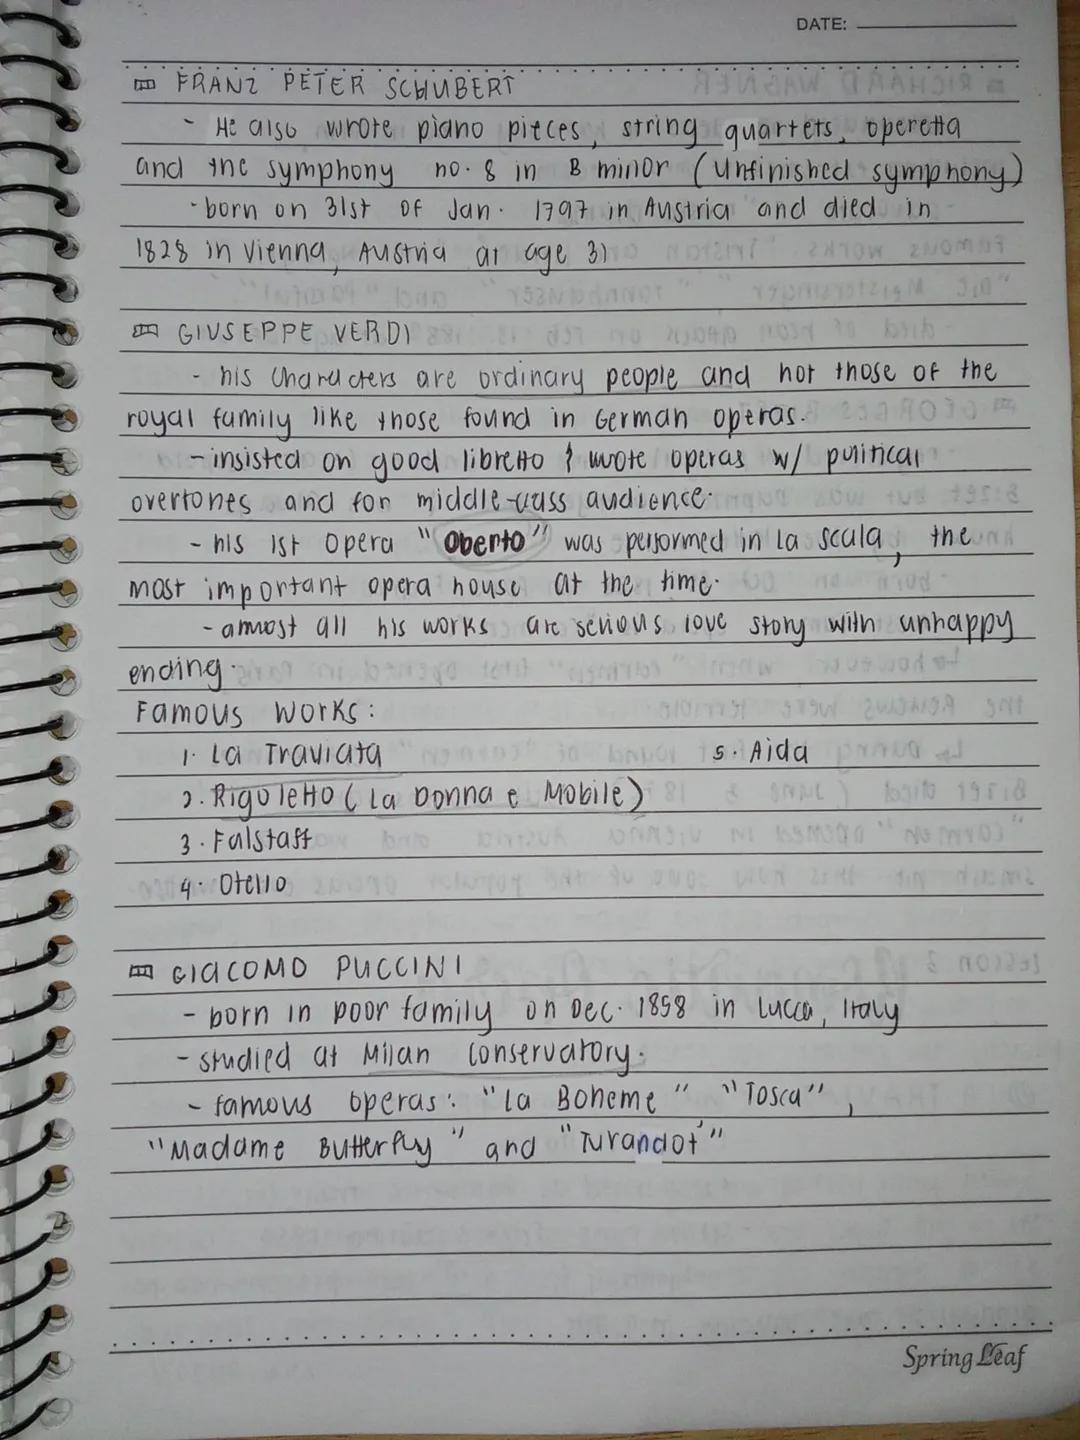 DATE:
FRANZ PETER SCHUBERT
- He also wrote piano pieces, string quartets, operetta
and the symphony no. 8 in B minor (Unfinished symphony)
- born on 31st OF Jan. 1797 in Austria and died in
1828 in Vienna, Austria at age 31
GIUSEPPE VERDI
- his characters are ordinary people and not those of the
royal family like those found in German operas.
- insisted on good libretto & wrote operas w/ political
overtones and for middle-class audience.
- his 1st opera "Oberto" was performed in La scala, the
most important opera house at the time.
- almost all his works are serious love story with unhappy
ending.
Famous Works:
1. La Traviata 5. Aida
2. Rigoletto (La Donna e Mobile)
3. Falstaff
4. Otello
GIACOMO PUCCINI
- born in poor family on Dec. 1858 in Lucca, Italy
- studied at Milan Conservatory.
- famous operas: "La Boheme" "Tosca",
"Madame Butterfly" and "Turandot"
Spring Leaf